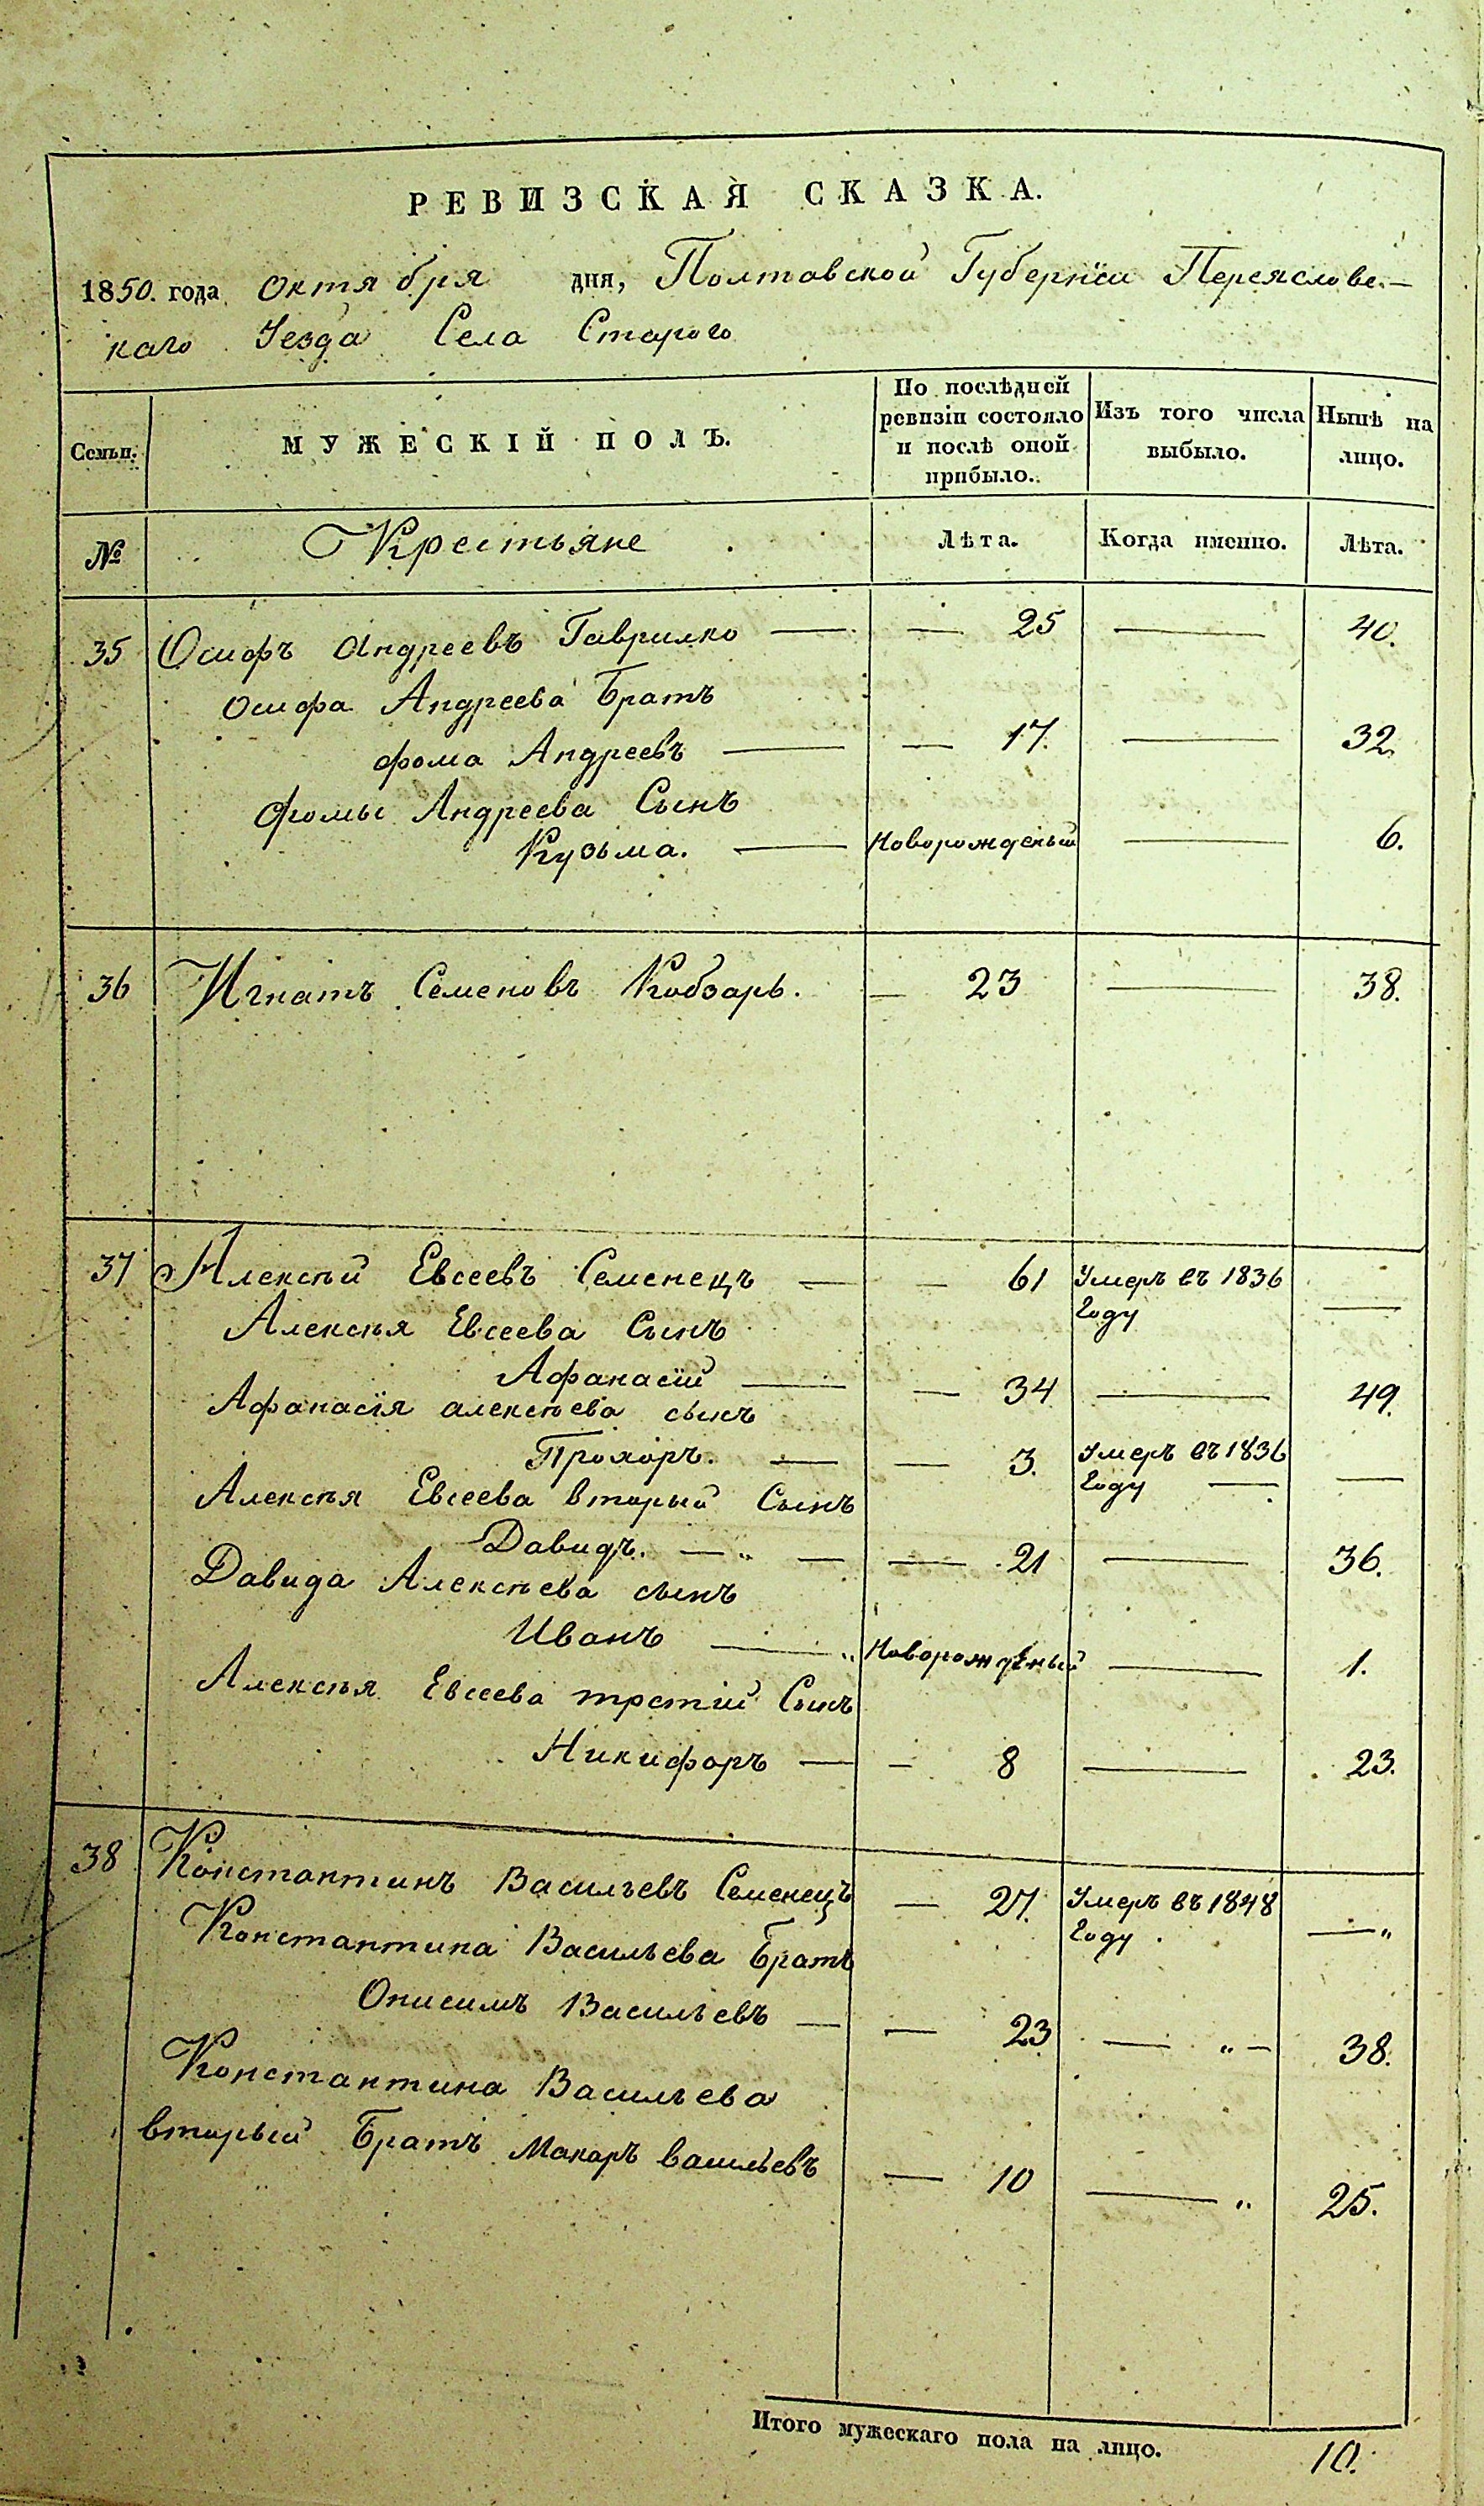 РЕВИЗСКАЯ СКАЗКА.
1850. года Октября дня, Полтавской Губернїи Переяслове-
каго Уезда Села Старого
Семьи. МУЖЕСКІЙ ПОЛЪ. По послѣдней ревизіи состояло и послѣ оной прибыло. Изъ того числа выбыло. Нынѣ на лицо.
№ Крестьяне Лѣта. Когда именно. Лѣта.
35 Осифъ Андреевъ Гаврилко — — 25 — 40.
Осифа Андреева Братъ
фома Андреевъ — — 17. — 32
фомы Андреева Сынъ
Кузьма. — Новорожденый — 6.
36 Игнатъ Семеновъ Кобзарь. — 23 — 38.
37 Алексѣй Евсеевъ Семенецъ — — 61 Умеръ въ 1836
Году —
Алексѣя Евсеева Сынъ
Афанасїй — — 34 — 49.
Афанасїя алексѣева сынъ
Прохоръ. — — 3. Умеръ въ 1836
Году — —
Алексѣя Евсеева вторый Сынъ
Давидъ. — „ — — 21 — 36.
Давида Алексѣева сынъ
Иванъ — „ Новорожденый — 1.
Алексѣя Евсеева третїй Сынъ
Никифоръ — — 8 — 23.
38 Константинъ Васильевъ Семенецъ — 27. Умеръ въ 1848
Году . — „
Константина Васильева Братъ
Онисимъ Васильевъ — — 23 — „ — 38.
Константина Васильева
вторый Братъ Макаръ васильевъ — 10 — „ 25.
Итого мужескаго пола на лицо. 10.